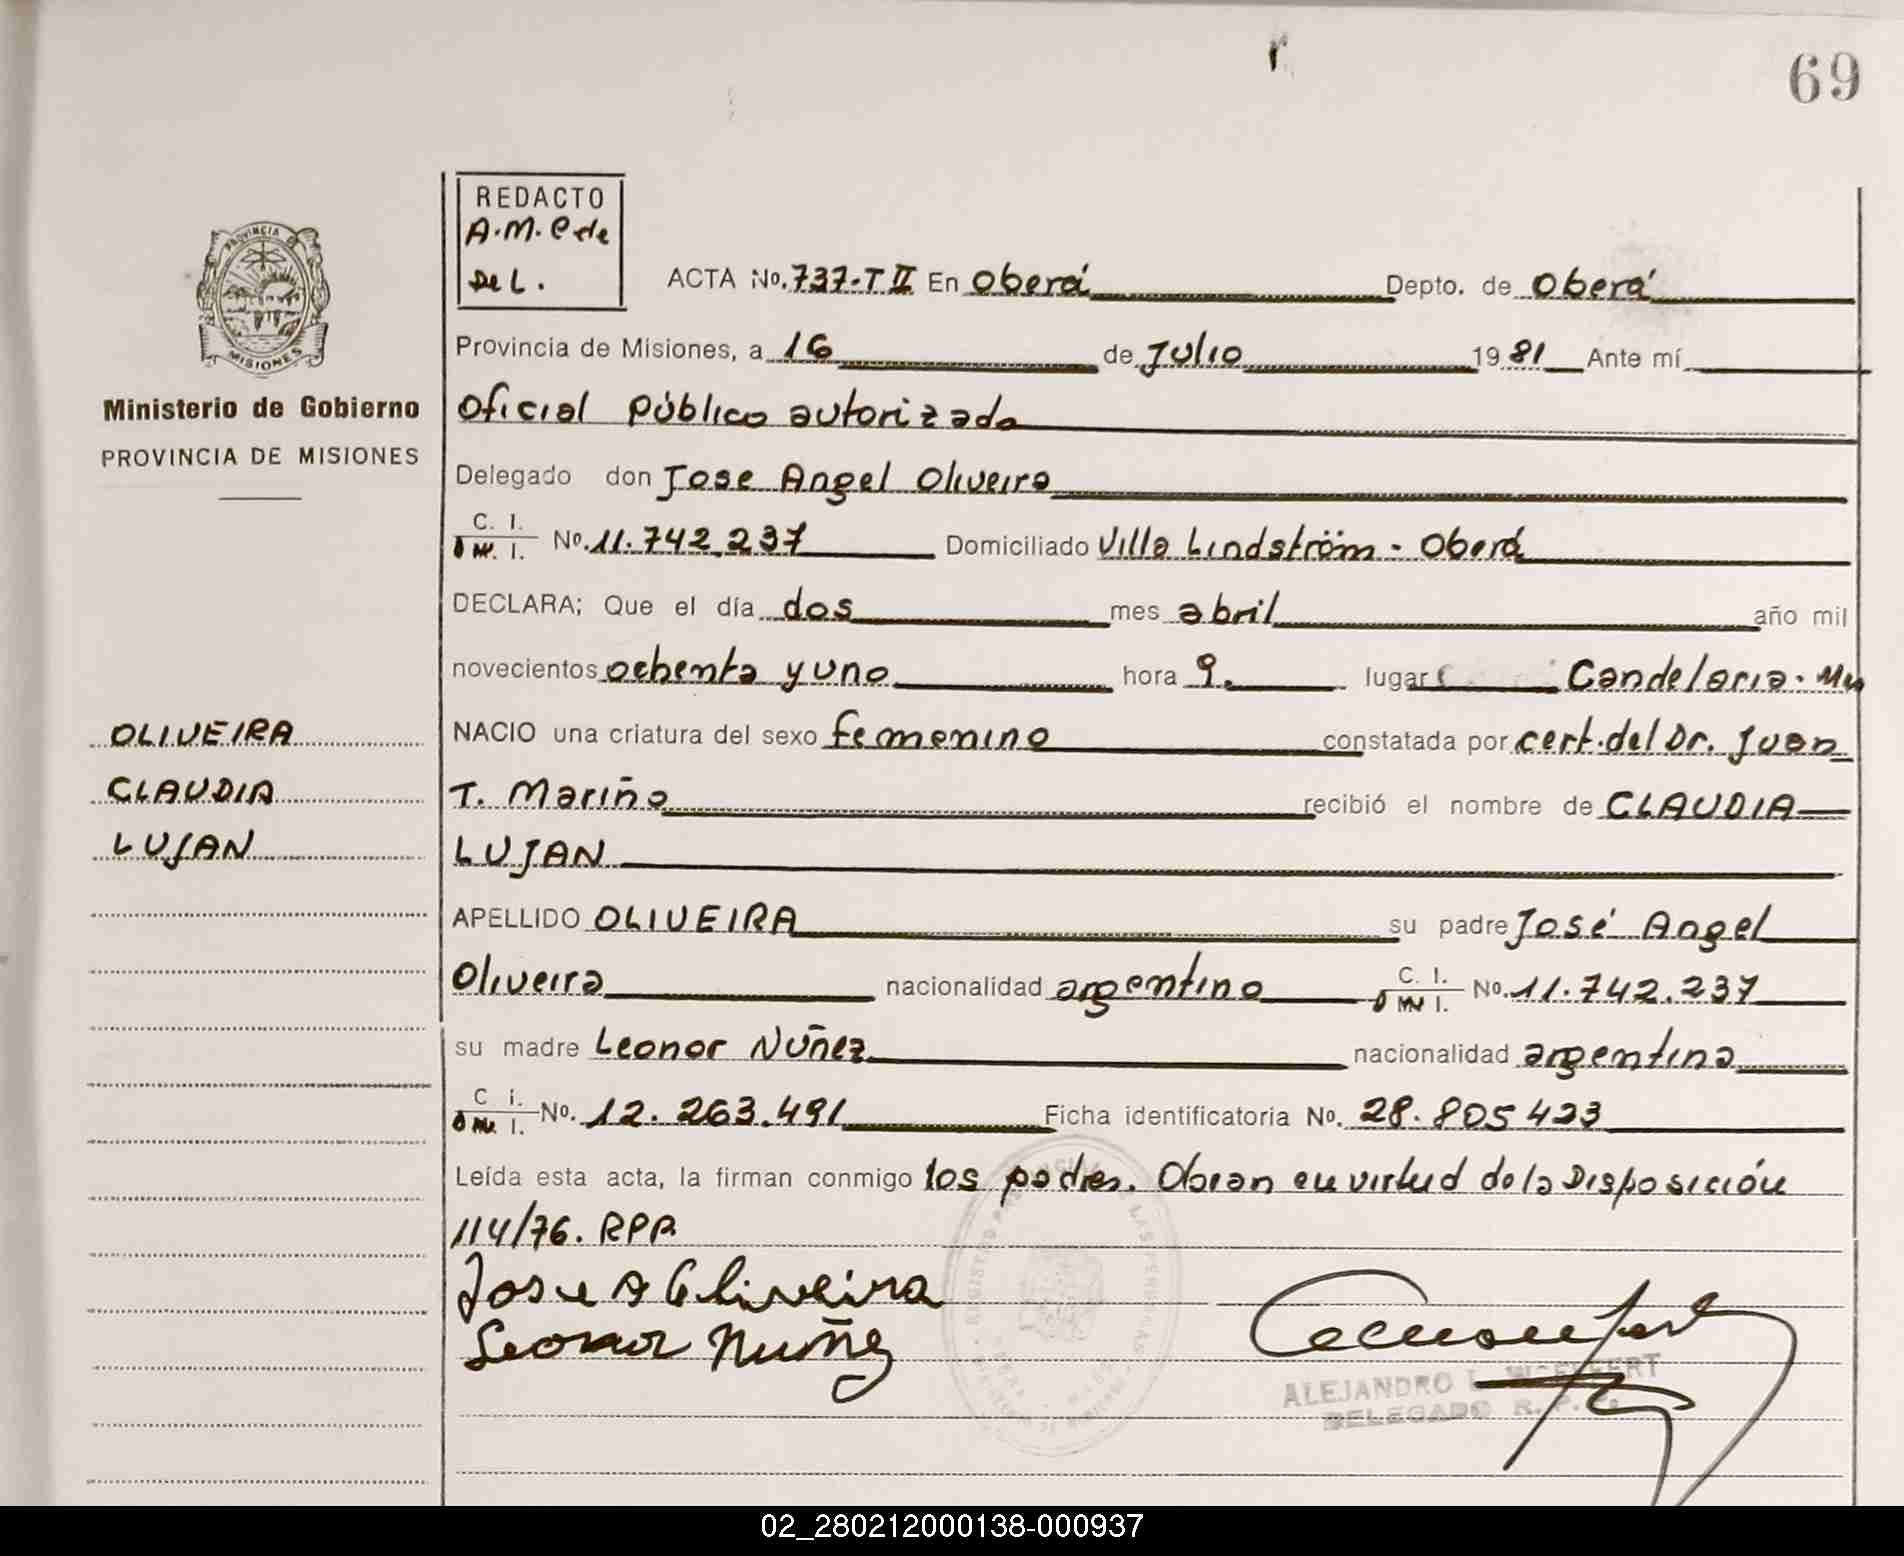 69
REDACTO
A.M.C de
De L.
PROVINCIA DE
MISIONES
Ministerio de Gobierno
PROVINCIA DE MISIONES
ACTA No. 737-T II En Oberá Depto. de Oberá
Provincia de Misiones, a 16 de Julio 1981 Ante mí
Oficial Público autorizado
Delegado don Jose Angel Oliveira
C. I.
D M. I. No. 11.742.237 Domiciliado Villa Lindström - Oberá
DECLARA; Que el día dos mes abril año mil
novecientos ochenta y uno hora 9. lugar Candelaria. Mns
OLIVEIRA NACIO una criatura del sexo femenino constatada por cert. del Dr. Juan
CLAUDIA T. Mariño recibió el nombre de CLAUDIA
LUJAN LUJAN
APELLIDO OLIVEIRA su padre José Angel
Oliveira nacionalidad argentino C. I. D N I. No. 11.742.237
su madre Leonor Nuñez nacionalidad argentina
C i. No. 12.263.491 Ficha identificatoria No. 28.805423
Leída esta acta, la firman conmigo los padres. Obran en virtud de la Disposición
114/76. RPP.
Jose A Oliveira
Leonor Nuñez
ALEJANDRO L.
DELEGADO R. P. P.
02_280212000138-000937